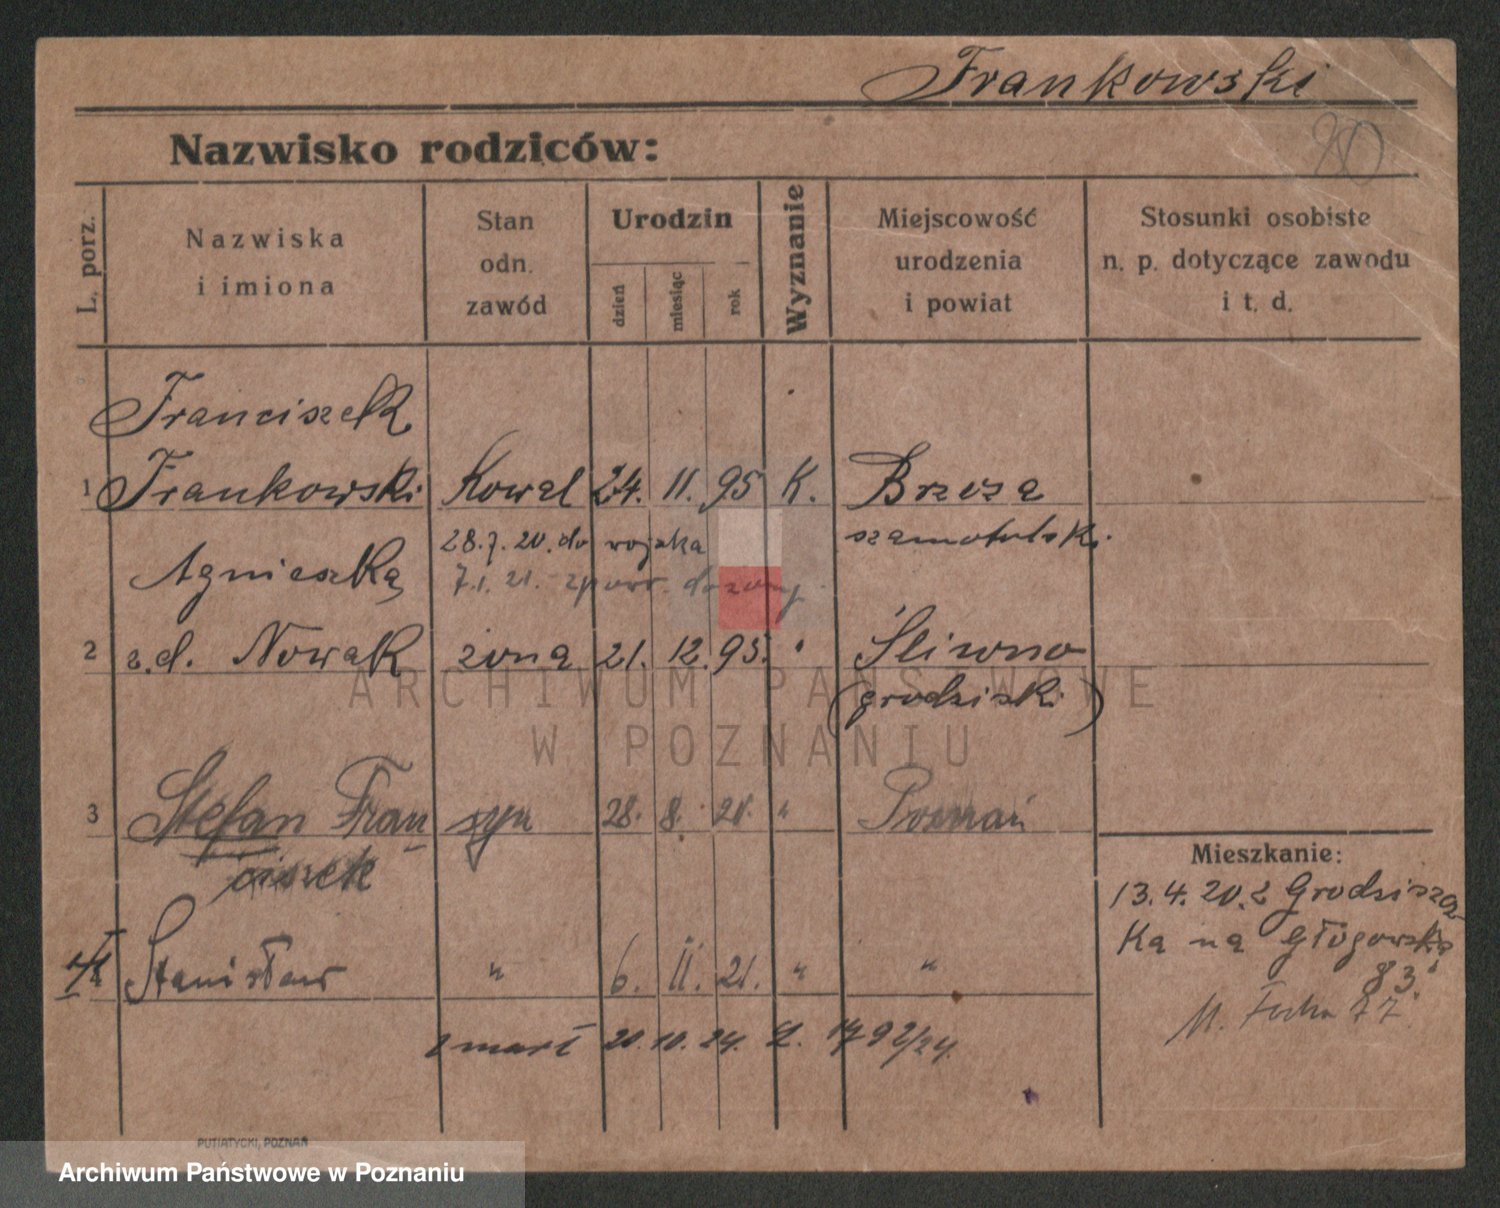 Frankowski
Nazwisko rodziców:
L. porz.
Nazwiska
i imiona
Stan
odn.
zawód
Urodzin
dzień
miesiąc
rok
Wyznanie
Miejscowość
urodzenia
i powiat
Stosunki osobiste
n. p. dotyczące zawodu
i t. d.
Franciszek
1 Frankowski Kowal 24. 11. 95 K. Brzoza
28.7.20. do wojska szamotulski.
Agnieszka
7.1.21.
2 z.d. Nowak żona 21. 12. 95. " Śliwno
(grodziski)
3 Stefan Fran syn 28. 8. 20. " Poznań
ciszek
Mieszkanie:
13.4.20. z Grodzisza
ka na Głogowska
83.
4 Stanisław " 6. II. 21. " "
M. Focha 77.
zmarł 20. 10. 24. 1792/24.
PUTIATYCKI, POZNAŃ
ARCHIWUM PAŃSTWOWE
W POZNANIU
Archiwum Państwowe w Poznaniu